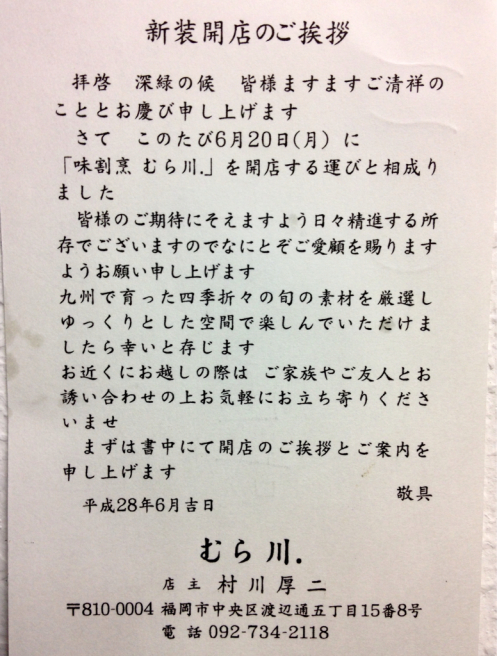 新装開店のご挨拶
拝啓　深緑の候　皆様ますますご清祥の
こととお慶び申し上げます
さて　このたび6月20日(月)　に
「味割烹 むら川.」を開店する運びと相成り
ました
皆様のご期待にそえますよう日々精進する所
存でございますのでなにとぞご愛顧を賜ります
ようお願い申し上げます
九州で育った四季折々の旬の素材を厳選し
ゆっくりとした空間で楽しんでいただけま
したら幸いと存じます
お近くにお越しの際は　ご家族やご友人とお
誘い合わせの上お気軽にお立ち寄りくださ
いませ
まずは書中にて開店のご挨拶とご案内を
申し上げます
敬具
平成28年6月吉日
むら川.
店主　村川厚二
〒810-0004 福岡市中央区渡辺通五丁目15番8号
電話 092-734-2118